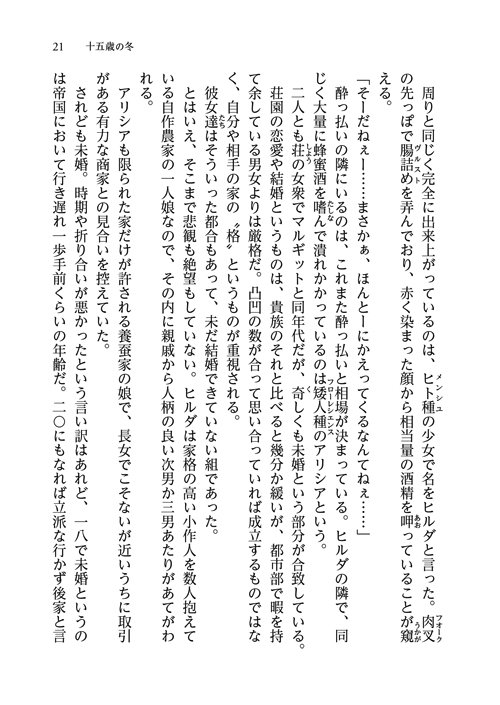 21　十五歳の冬
周りと同じく完全に出来上がっているのは、ヒト種の少女で名をヒルダと言った。肉叉
の先っぽで腸詰めを弄んでおり、赤く染まった顔から相当量の酒精を呷っていることが窺
える。
「そーだねぇー……まさかぁ、ほんとーにかえってくるなんてねぇ……」
酔っ払いの隣にいるのは、これまた酔っ払いと相場が決まっている。ヒルダの隣で、同
じく大量に蜂蜜酒を嗜んで潰れかかっているのは矮人種のアリシアという。
二人とも荘の女衆でマルギットと同年代だが、奇しくも未婚という部分が合致している。
荘園の恋愛や結婚というものは、貴族のそれと比べると幾分か緩いが、都市部で暇を持
て余している男女よりは厳格だ。凸凹の数が合って思い合っていれば成立するものではな
く、自分や相手の家の〝格〟というものが重視される。
彼女達はそういった都合もあって、未だ結婚できていない組であった。
とはいえ、そこまで悲観も絶望もしていない。ヒルダは家格の高い小作人を数人抱えて
いる自作農家の一人娘なので、その内に親戚から人柄の良い次男か三男あたりがあてがわ
れる。
アリシアも限られた家だけが許される養蚕家の娘で、長女でこそないが近いうちに取引
がある有力な商家との見合いを控えていた。
されども未婚。時期や折り合いが悪かったという言い訳はあれど、一八で未婚というの
は帝国において行き遅れ一歩手前くらいの年齢だ。二〇にもなれば立派な行かず後家と言